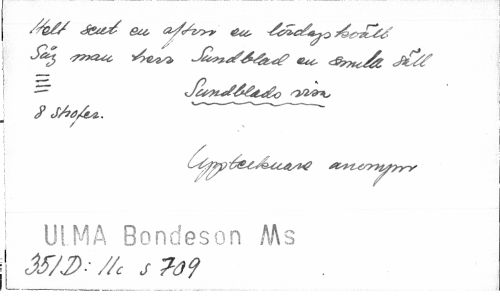 Helt sent en afton en lördagskväll
Såg man herr Sundblad en smila säll
Sundblads visa
8 strofer.
Upptecknare anonym
ULMA Bondeson Ms
351D: 11c s 709